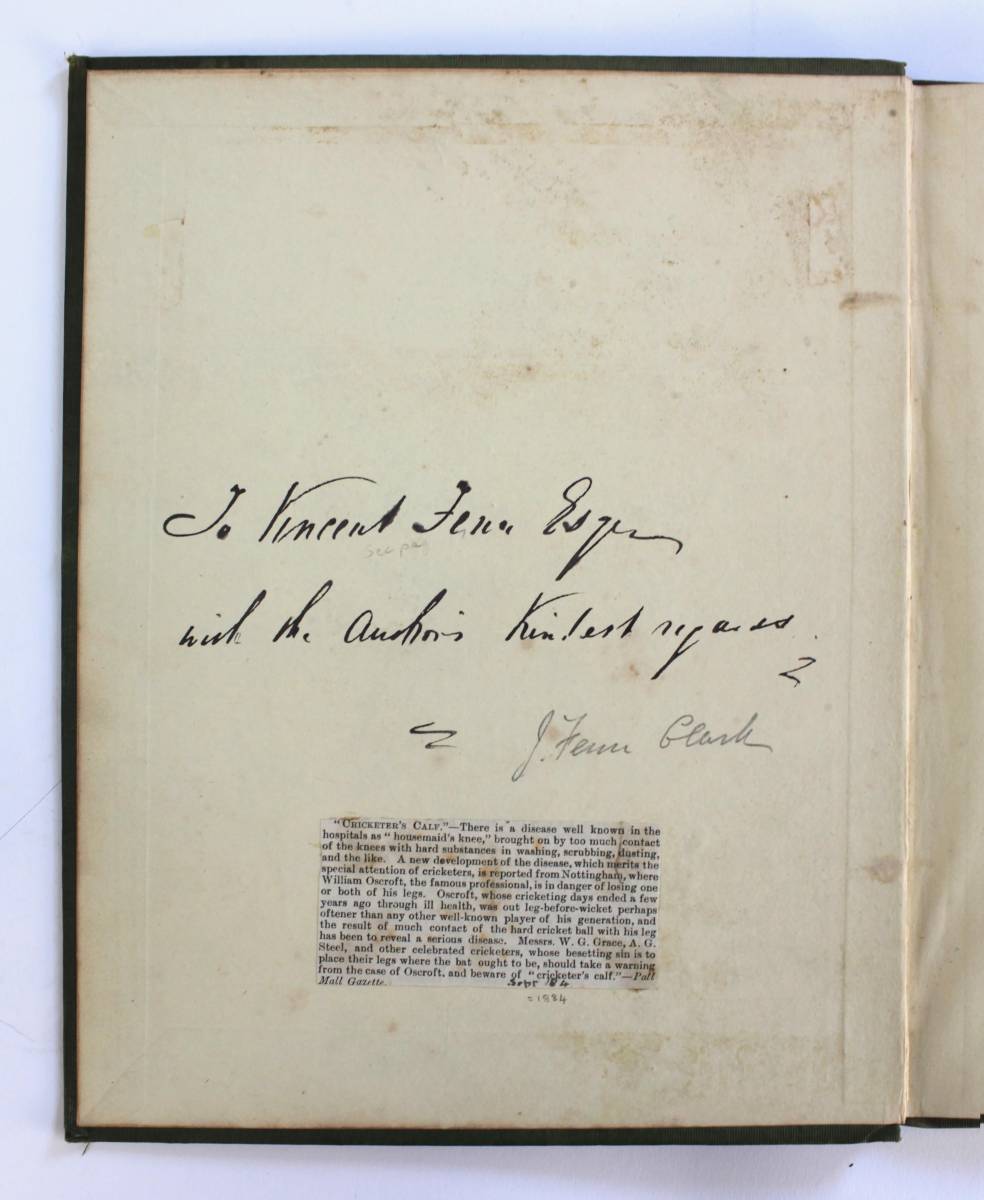 To Vincent Fenn Esqre
see pag
with the Author's Kindest regards.
J. Fenn Clark
"CRICKETER'S CALF."—There is a disease well known in the
hospitals as "housemaid's knee," brought on by too much contact
of the knees with hard substances in washing, scrubbing, dusting,
and the like. A new development of the disease, which merits the
special attention of cricketers, is reported from Nottingham, where
William Oscroft, the famous professional, is in danger of losing one
or both of his legs. Oscroft, whose cricketing days ended a few
years ago through ill health, was out leg-before-wicket perhaps
oftener than any other well-known player of his generation, and
the result of much contact of the hard cricket ball with his leg
has been to reveal a serious disease. Messrs. W. G. Grace, A. G.
Steel, and other celebrated cricketers, whose besetting sin is to
place their legs where the bat ought to be, should take a warning
from the case of Oscroft, and beware of "cricketer's calf."—Pall
Mall Gazette. Sept 84
=1884